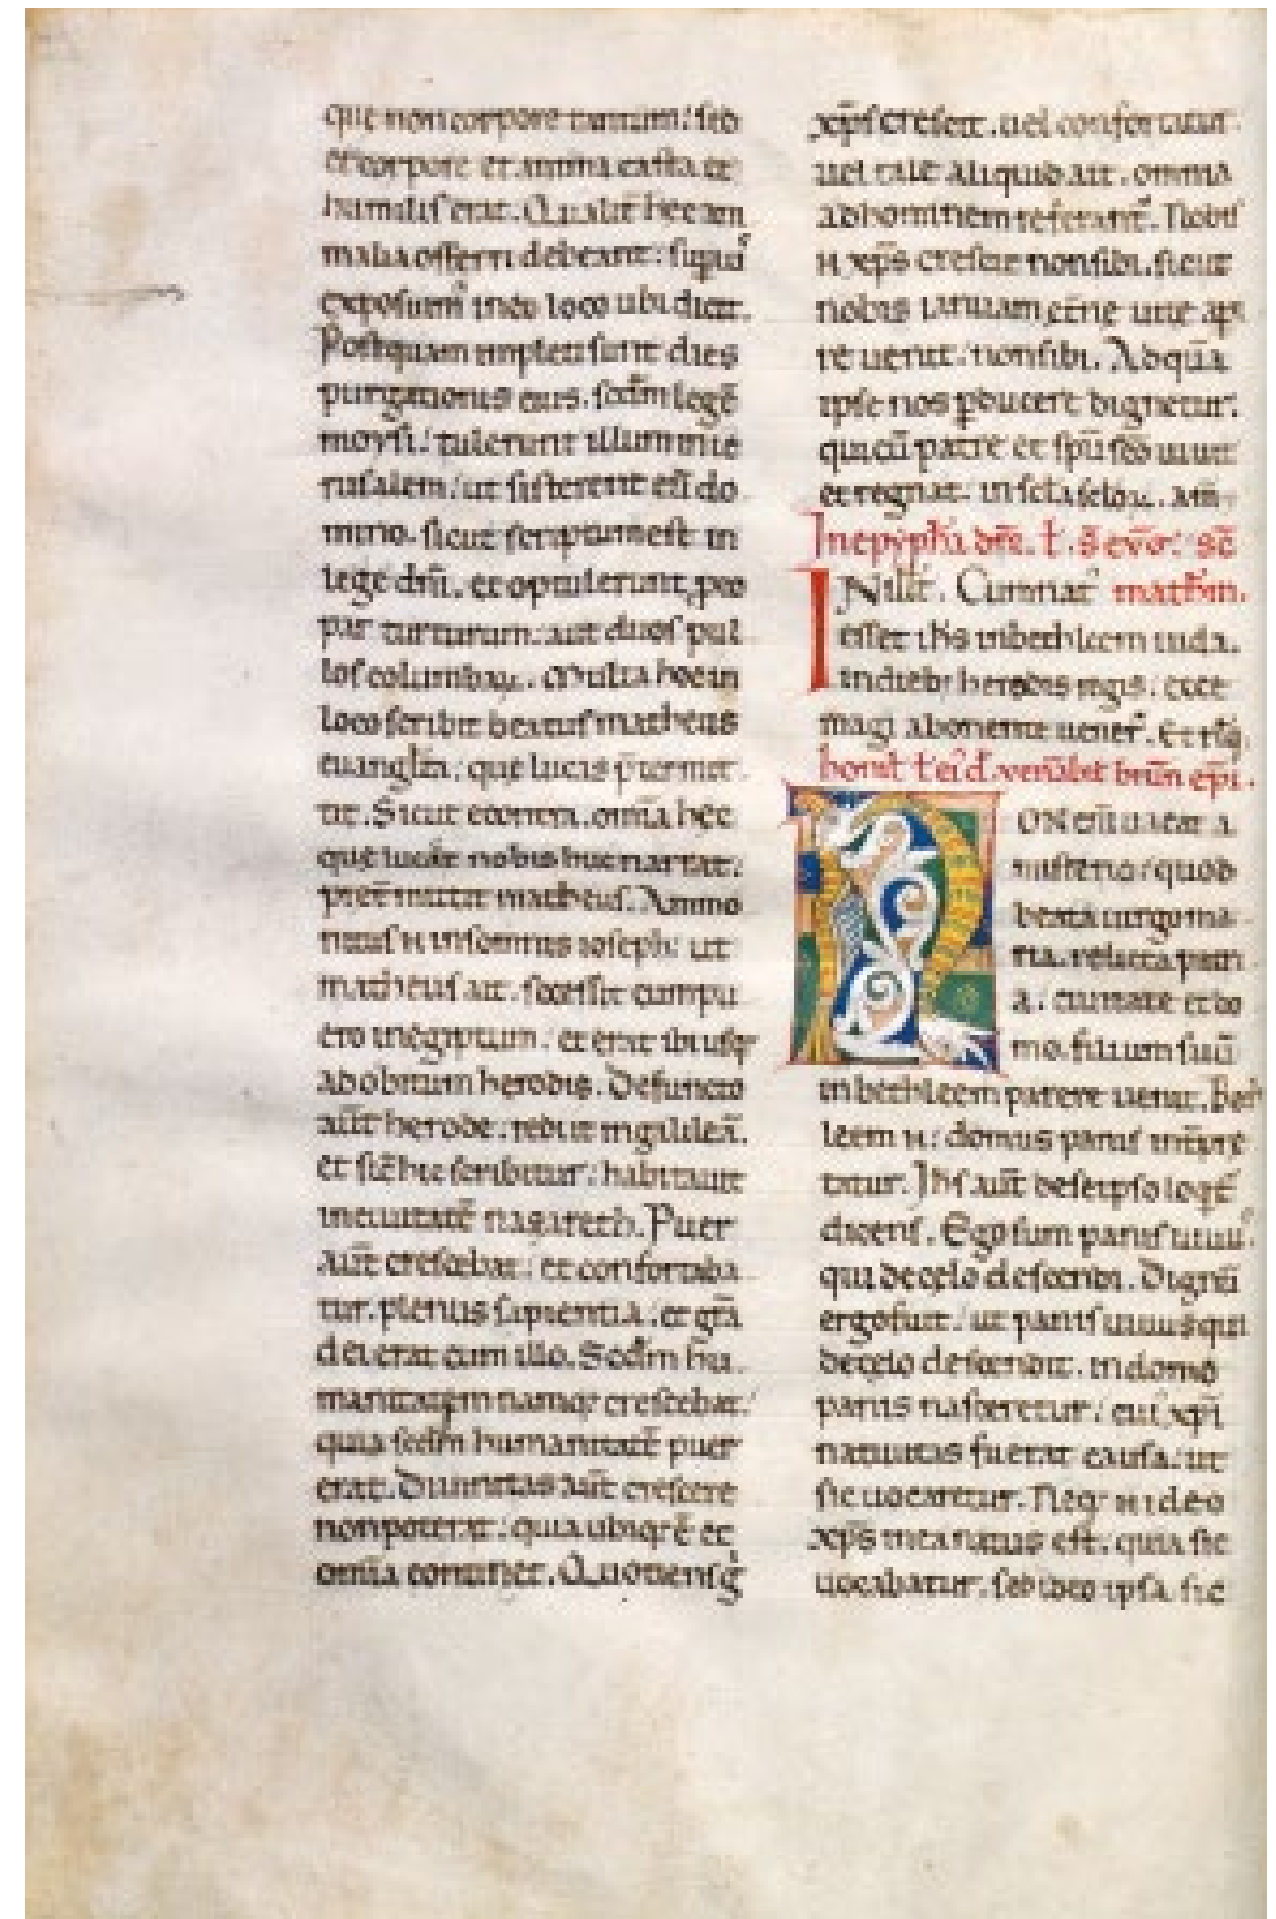 que non corpore tantum: sed
et corpore et anima casta et
humilis erat. Qualit̄ hec ani
malia offerri debeant: sup̄iuꝰ
exposuimꝰ in eo loco ubi dicit.
Postquam impleti sunt dies
purgationis eius. scd̄m legē
moysi: tulerunt illum in ie
rusalem: ut sisterent eū do
mino. sicut scriptum est in
lege dn̄i. et optulerunt pro
par turturum: aut duos pul
los columbaꝝ. Multa hoc in
loco scribit beatus matheus
euanglīa: que lucas p̄termit
tit. Sicut econtra. om̄ia hec
que lucas nobis huc narrat:
pret̄mittit matheus. Ammo
nitus n̄ in somnis ioseph: ut
matheus ait. secessit cum pu
ero in egyptum: et erat ibi usqꝫ
ad obitum herodis. Defuncto
aūt herode: rediit in galileā.
et sic̄ hic scribitur: habitauit
in ciuitatē nazareth. Puer
aūt crescebat: et confortaba
tur. plenus sapientia: et gr̄a
dei erat cum illo. Scd̄m hu
manitatem namqꝫ crescebat:
quia scd̄m humanitatē puer
erat. Diuinitas aūt crescere
non poterat: quia ubiqꝫ ē et
om̄ia continet. Quotiens g̊
xp̄s crescit. uel confortatur
uel tale aliquid ait. omnia
ad hominem referant᷑. Nobis
n̄ xp̄s crescit non sibi. sicut
nobis ianuam et̄ne uite ap̲e
re uenit: non sibi. Ad quā
ipse nos p̲ducere dignetur.
qui cū patre et sp̄u sc̄o uiuit
et regnat in sc̄la sc̄loꝝ. am̄
In epyph̄ia dn̄i. ł. s̄ ev̄o: sc̄
IN ill̄t. Cum nat᷒ math̄m.
esset ih̄s in bethleem iuda.
in diebꝫ herodis regis: ecce
magi ab oriente uener̄. Et rłq̄.
homł ł ei᷒d. uen̄abił brūn ep̄i.
NON em̄ uacat a
misterio: quod
beata uirgo ma
ria. relicta patri
a. ciuitate et do
mo. filium suū
in bethleem parere uenit. Beth
leem n̄: domus panis int̄pre
tatur. Ih̄s aūt de se ipso loqt᷑
dicens. Ego sum panis uiuꝰ.
qui de celo descendi. Dignū
ergo fuit: ut panis uiuus qui
de celo descendit. in domo
panis nasceretur: cui xp̄i
natiuitas fuerat causa: ut
sic uocaretur. Neqꝫ n̄ ideo
xp̄s in ea natus est: quia sic
uocabatur. sed ideo ipsa sic